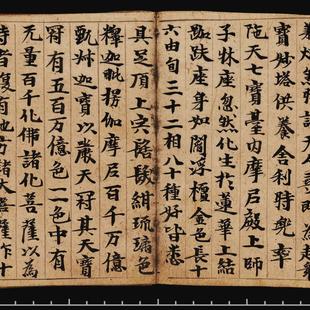 然時諸天人尋即為起衆
寶妙塔供養舍利時兜率
陁天七寶臺內摩尼殿上師
子牀座忽然化生於蓮華上結
跏趺座身如閻浮檀金色長十
六由旬三十二相八十種好皆悉
具足頂上宍髻髮紺琉璃色
釋迦毗楞伽摩尼百千万億
甄叔迦寶以嚴天冠其天寶
冠有五百万億色一一色中有
无量百千化佛諸化菩薩以為
侍者復有他方諸大菩薩作十